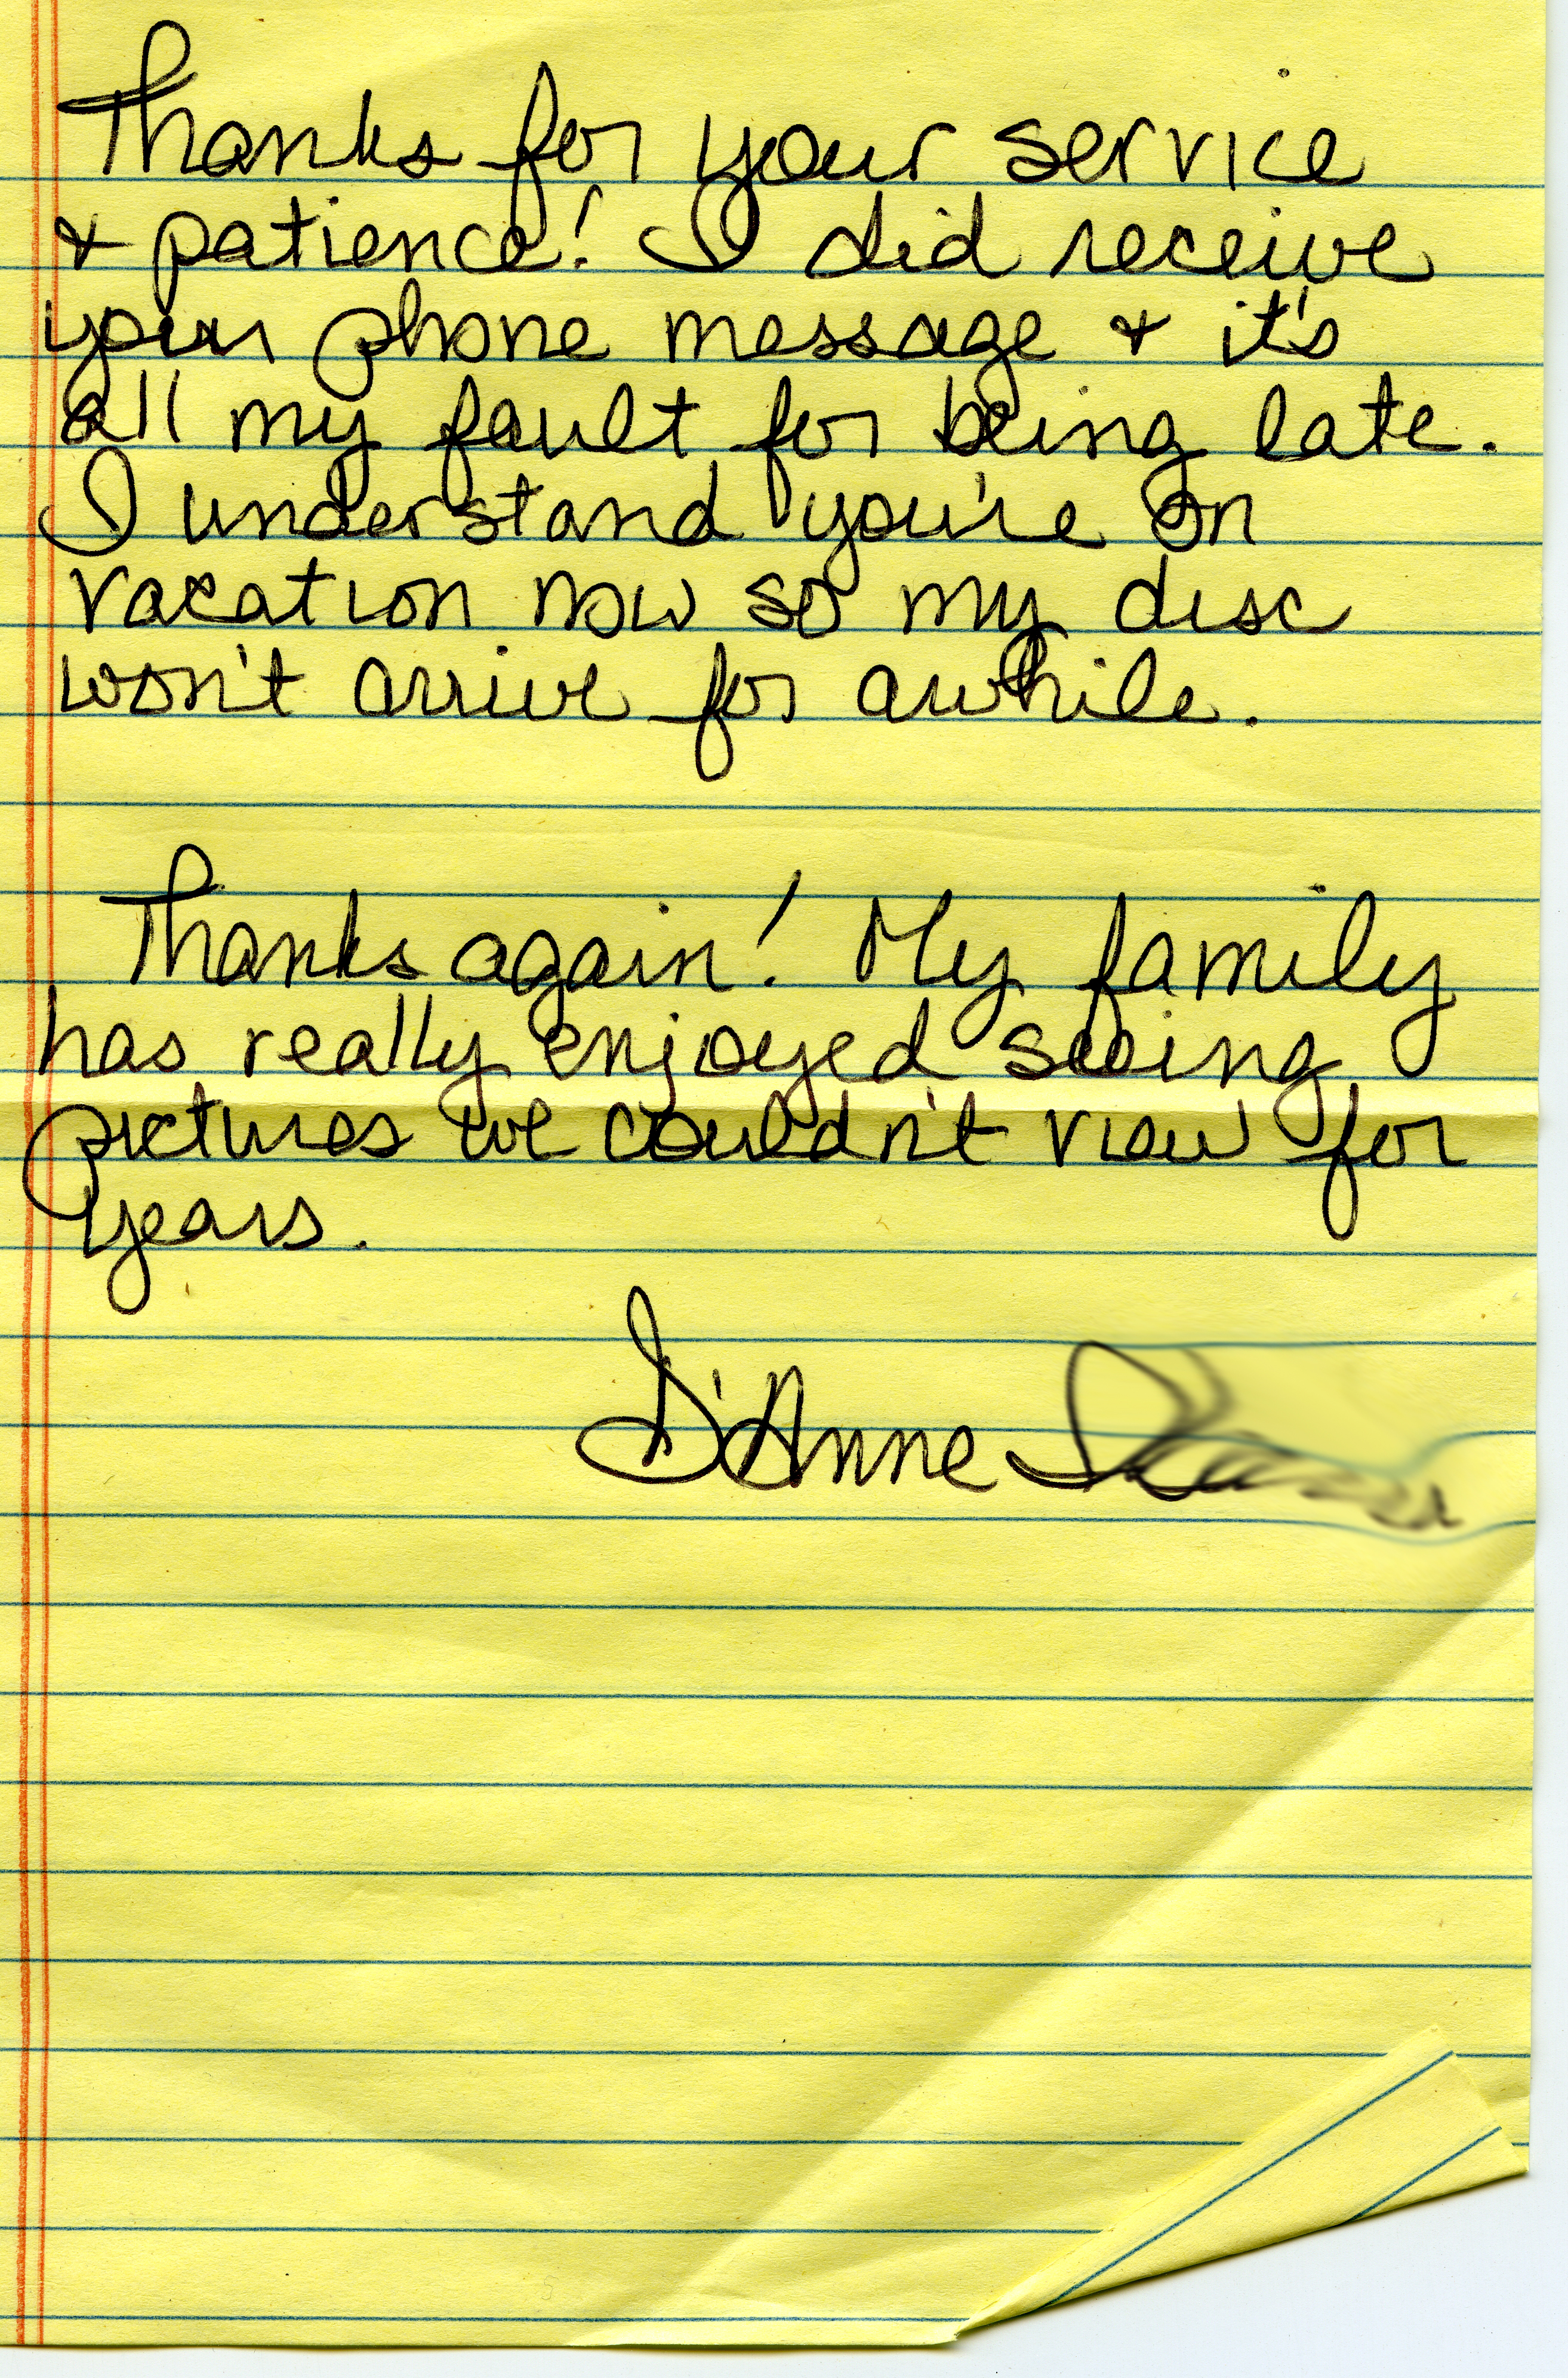 Thanks for your service
& patience! I did receive
your phone message & it's
all my fault for being late.
I understand you're on
vacation now so my disc
won't arrive for awhile.
Thanks again! My family
has really enjoyed seeing
pictures we couldn't view for
years.
D'Anne